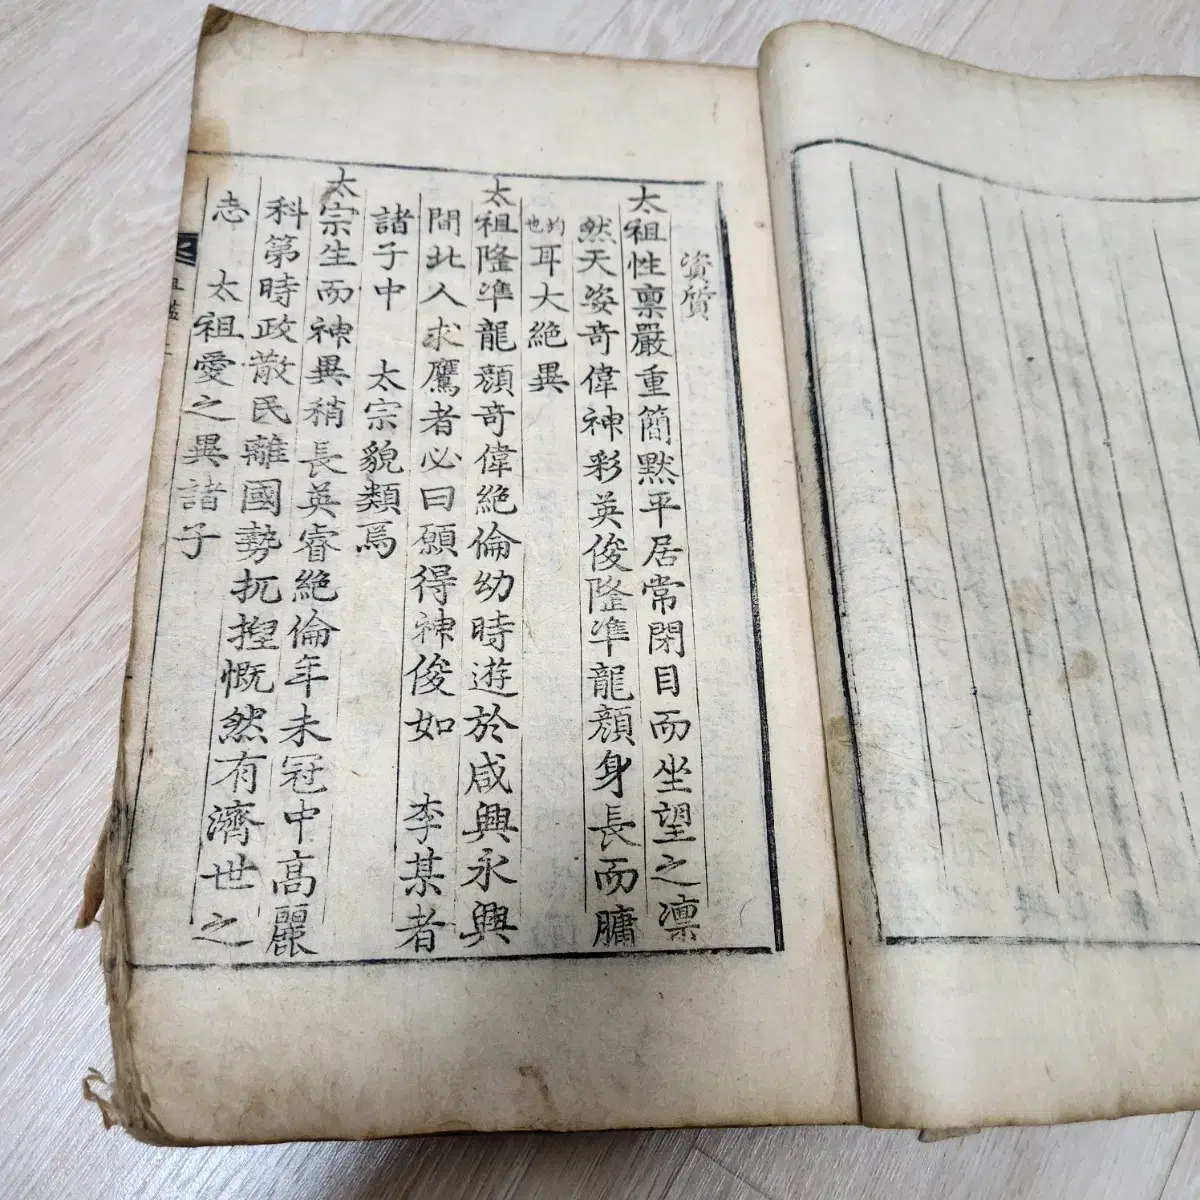 資質
太祖性禀嚴重簡默平居常閉目而坐望之凛
然天姿奇偉神彩英俊隆準龍顔身長而𦟛
也 耳大絶異
太祖隆準龍顔奇偉絶倫幼時遊於咸興永興
間北人求鷹者必曰願得神俊如 李某者
諸子中 太宗貌類焉
太宗生而神異稍長英睿絶倫年未冠中高麗
科第時政散民離國勢扤捏慨然有濟世之
志 太祖愛之異諸子